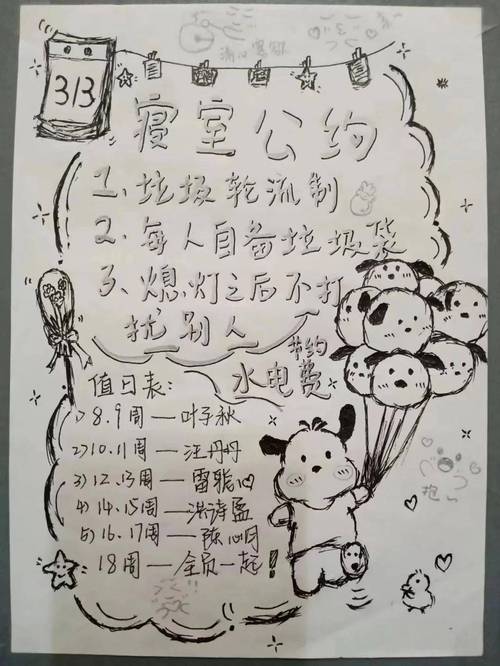 313
寝室公约
1、垃圾轮流制
2、每人自备垃圾袋
3、熄灯之后不打
扰别人
节约
水电费
值日表:
1)8.9周—叶子秋
2)10.11周—汪丹丹
3)12.13周—雷聪心
4)14.15周—洪诗孟
5)16.17周—陈心月
18周—全员一起!
抱